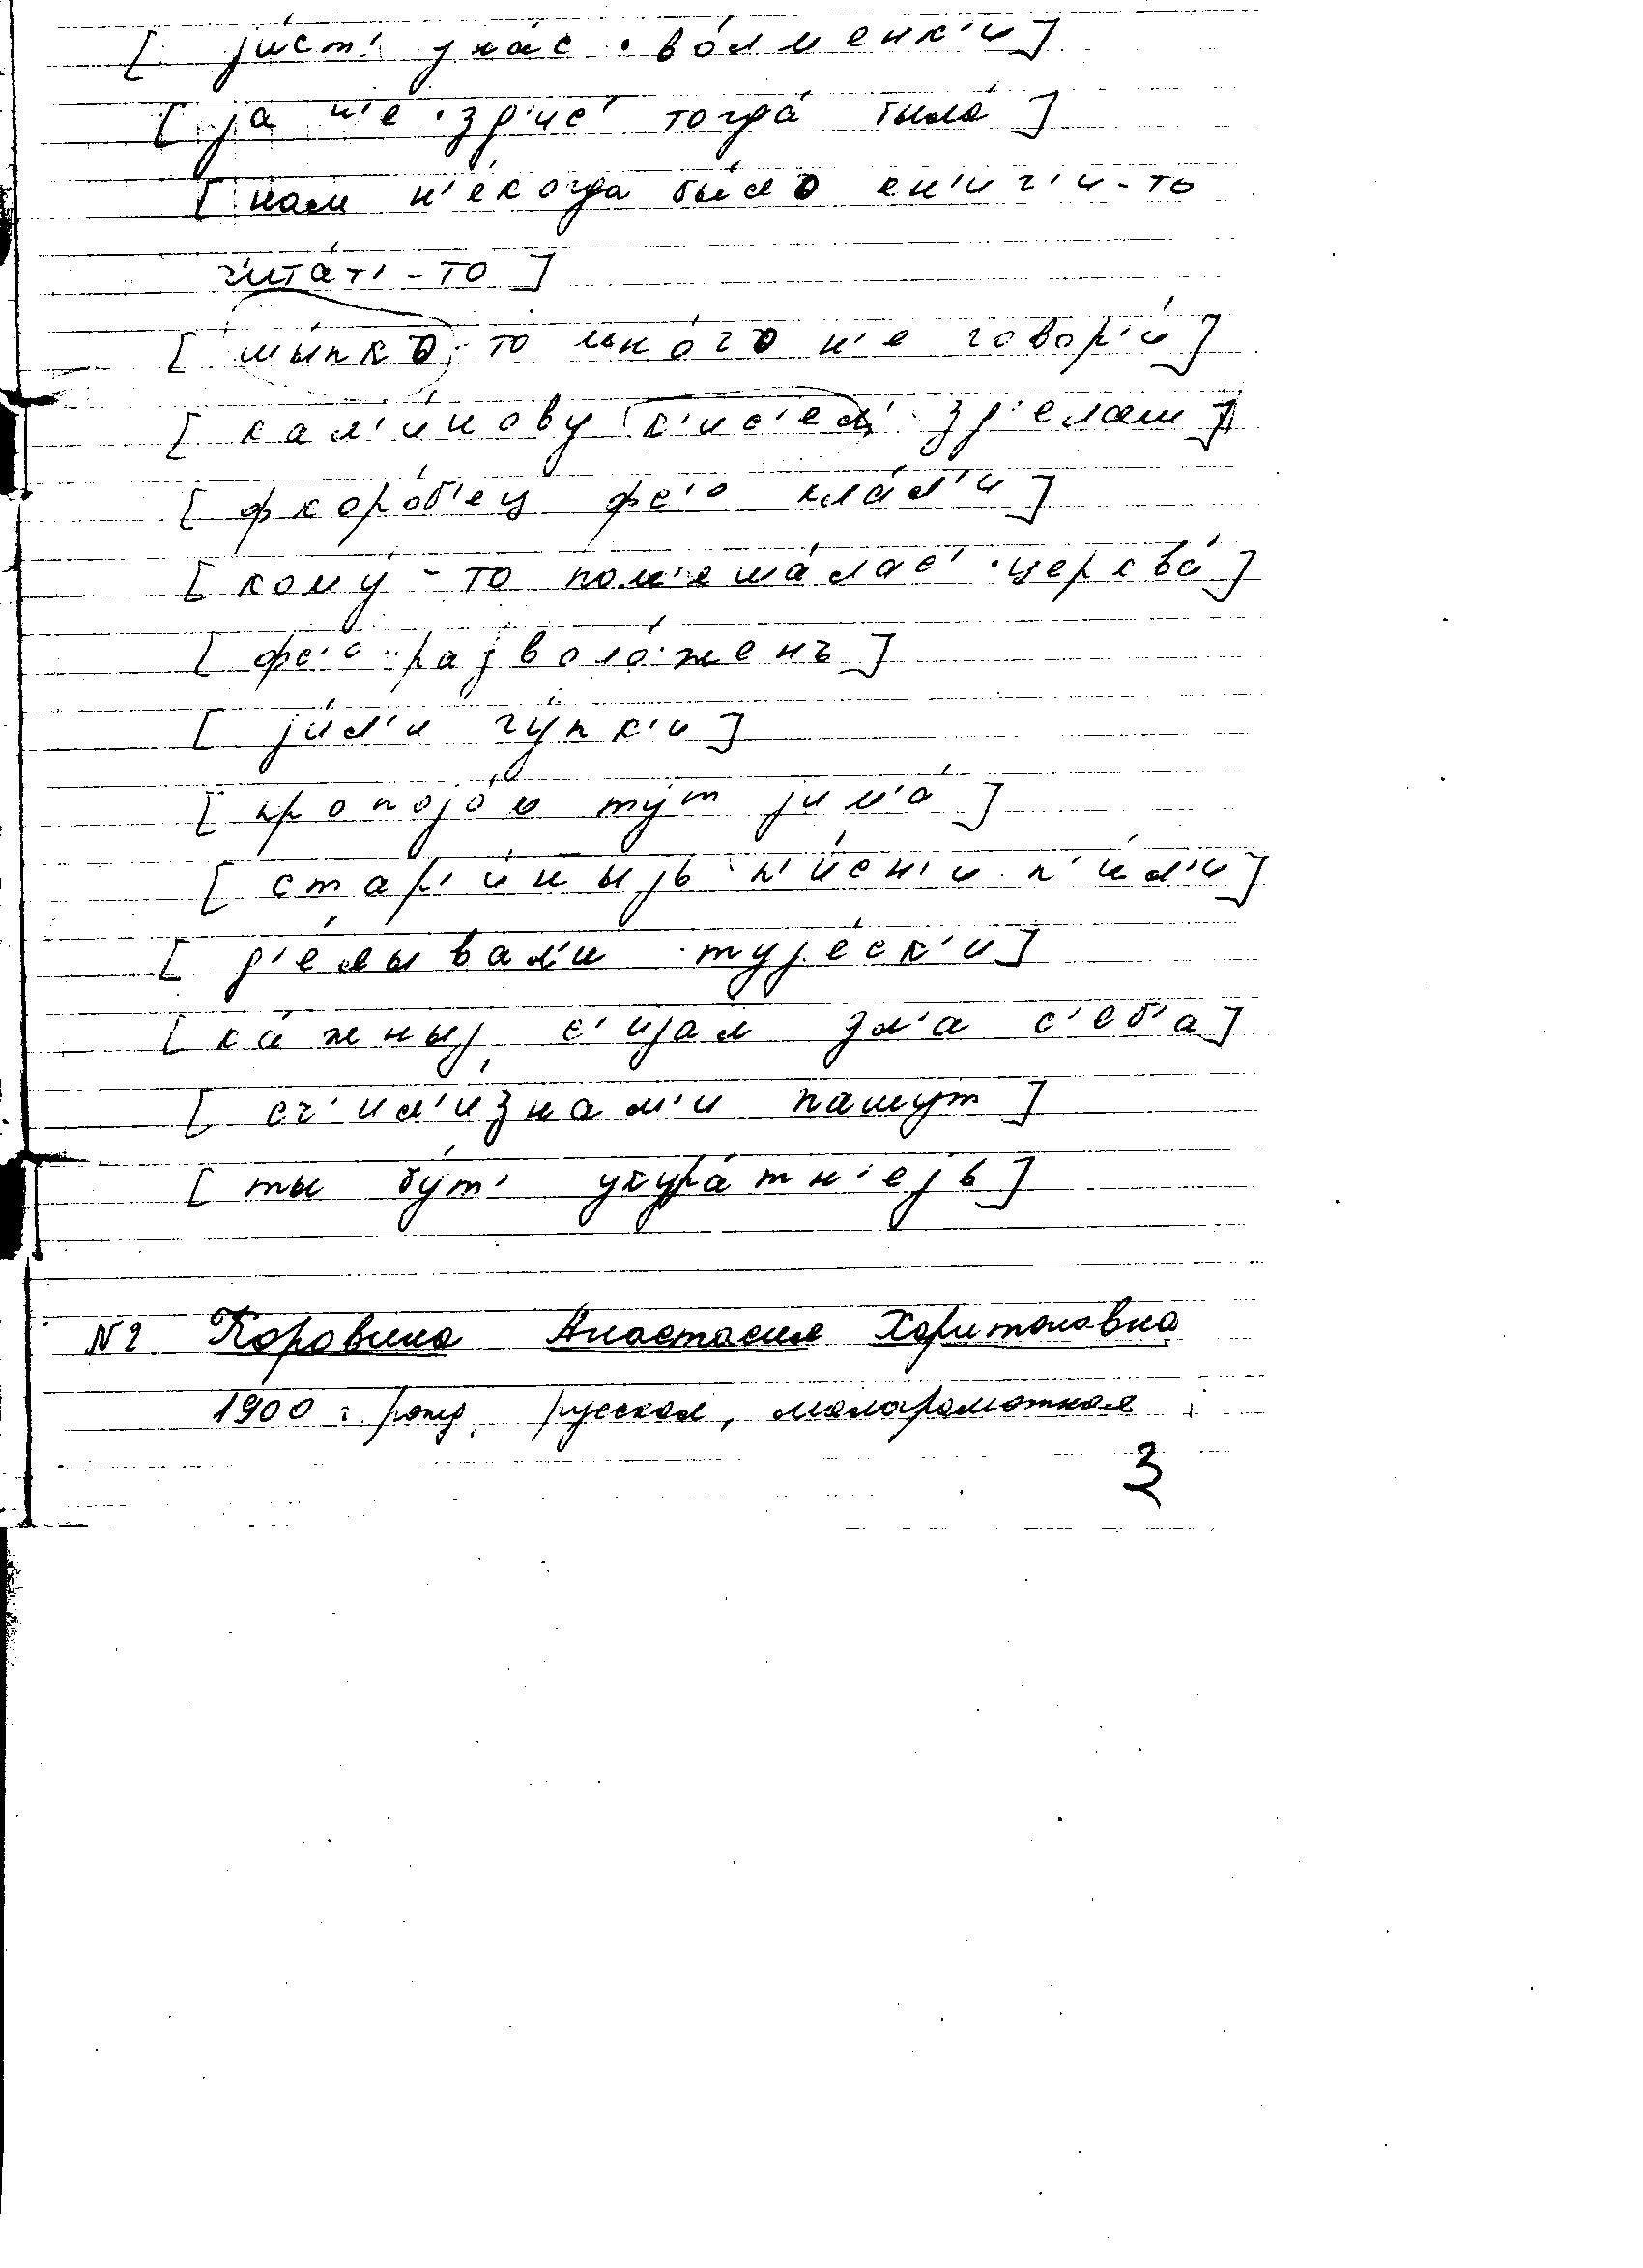 [ jи́ст' ȳ нáс вóлменк'и ]
[ jа н'е зд'ис' тогдá былá ]
[ нам н'éкогда бы́ло кн'иг'и-то
читáт'-то ]
[ шы́пко-то мнóго н'е говор'и́ ]
[ кал'и́нову к'ис'ел' зд'елаш ]
[ фкорóб'ец фс'о клáл'и ]
[ кому́-то пом'ешáлас' церквá ]
[ фс'о разволóженъ ]
[ jи́л'и гу́пк'и ]
[ пропоjóм ту́т jим'á ]
[ стар'и́ныjь п'и́сн'и п'и́л'и ]
[ д'éлывал'и туjéск'и ]
[ кáжныj с'иjал дл'а с'еб'а ]
[ сч'ил'и́знам'и пашут ]
[ ты бу́т' укурáтн'ejь ]
N2. Коровина Анастасия Харитоновна
1900 г. рожд. русская, малограмотная
3